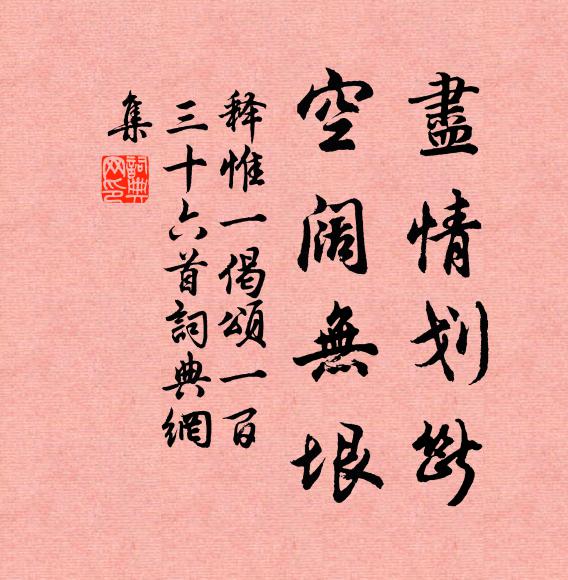 盡情划斷
空阔無垠
释惟一偈頌一百
三十六首詞典網
集
詞典网印